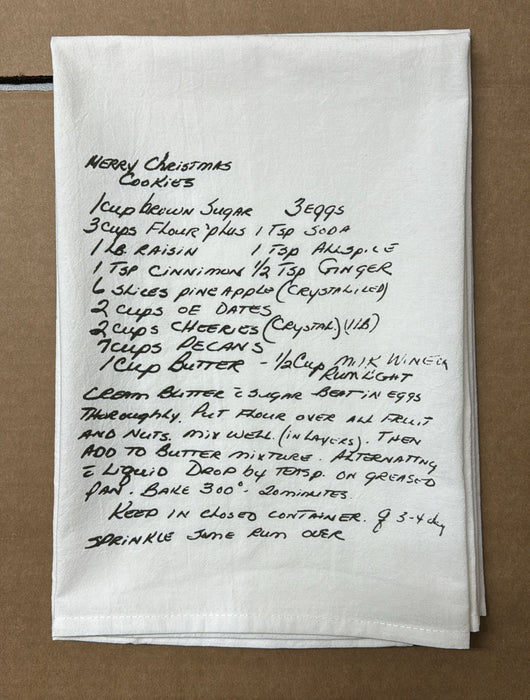 MERRY Christmas
Cookies
1 Cup brown Sugar 3 EGGS
3 Cups Flour plus 1 Tsp SODA
1 LB. RAISIN 1 Tsp ALLSPICE
1 TSP CINNIMON 1/2 Tsp GINGER
6 SLICES PINEAPPLE (CRYSTALIZED)
2 CUPS OF DATES
2 CUPS CHEERIES (CRYSTAL) (1 LB)
7 CUPS PECANS
1 CUP BUTTER - 1/2 Cup MILK WINE
RUM LIGHT
CREAM BUTTER c̄ SUGAR BEAT IN EGGS
THOROUGHLY. PUT FLOUR OVER ALL FRUIT
AND NUTS. MIX WELL. (IN LAYERS). THEN
ADD TO BUTTER MIXTURE. ALTERNATING
c̄ LIQUID DROP by TEASP. ON GREASED
PAN. BAKE 300° - 20 MINUTES.
KEEP IN CLOSED CONTAINER. 3-4 day
SPRINKLE SOME RUM OVER